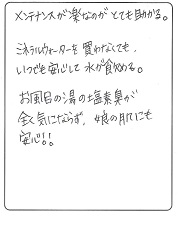 メンテナンスが楽なのが とても助かる。
ミネラルウォーターを 買わなくても、
いつでも安心して 水が飲める。
お風呂の湯の塩素臭が
全く気にならず、娘の肌にも
安心!!